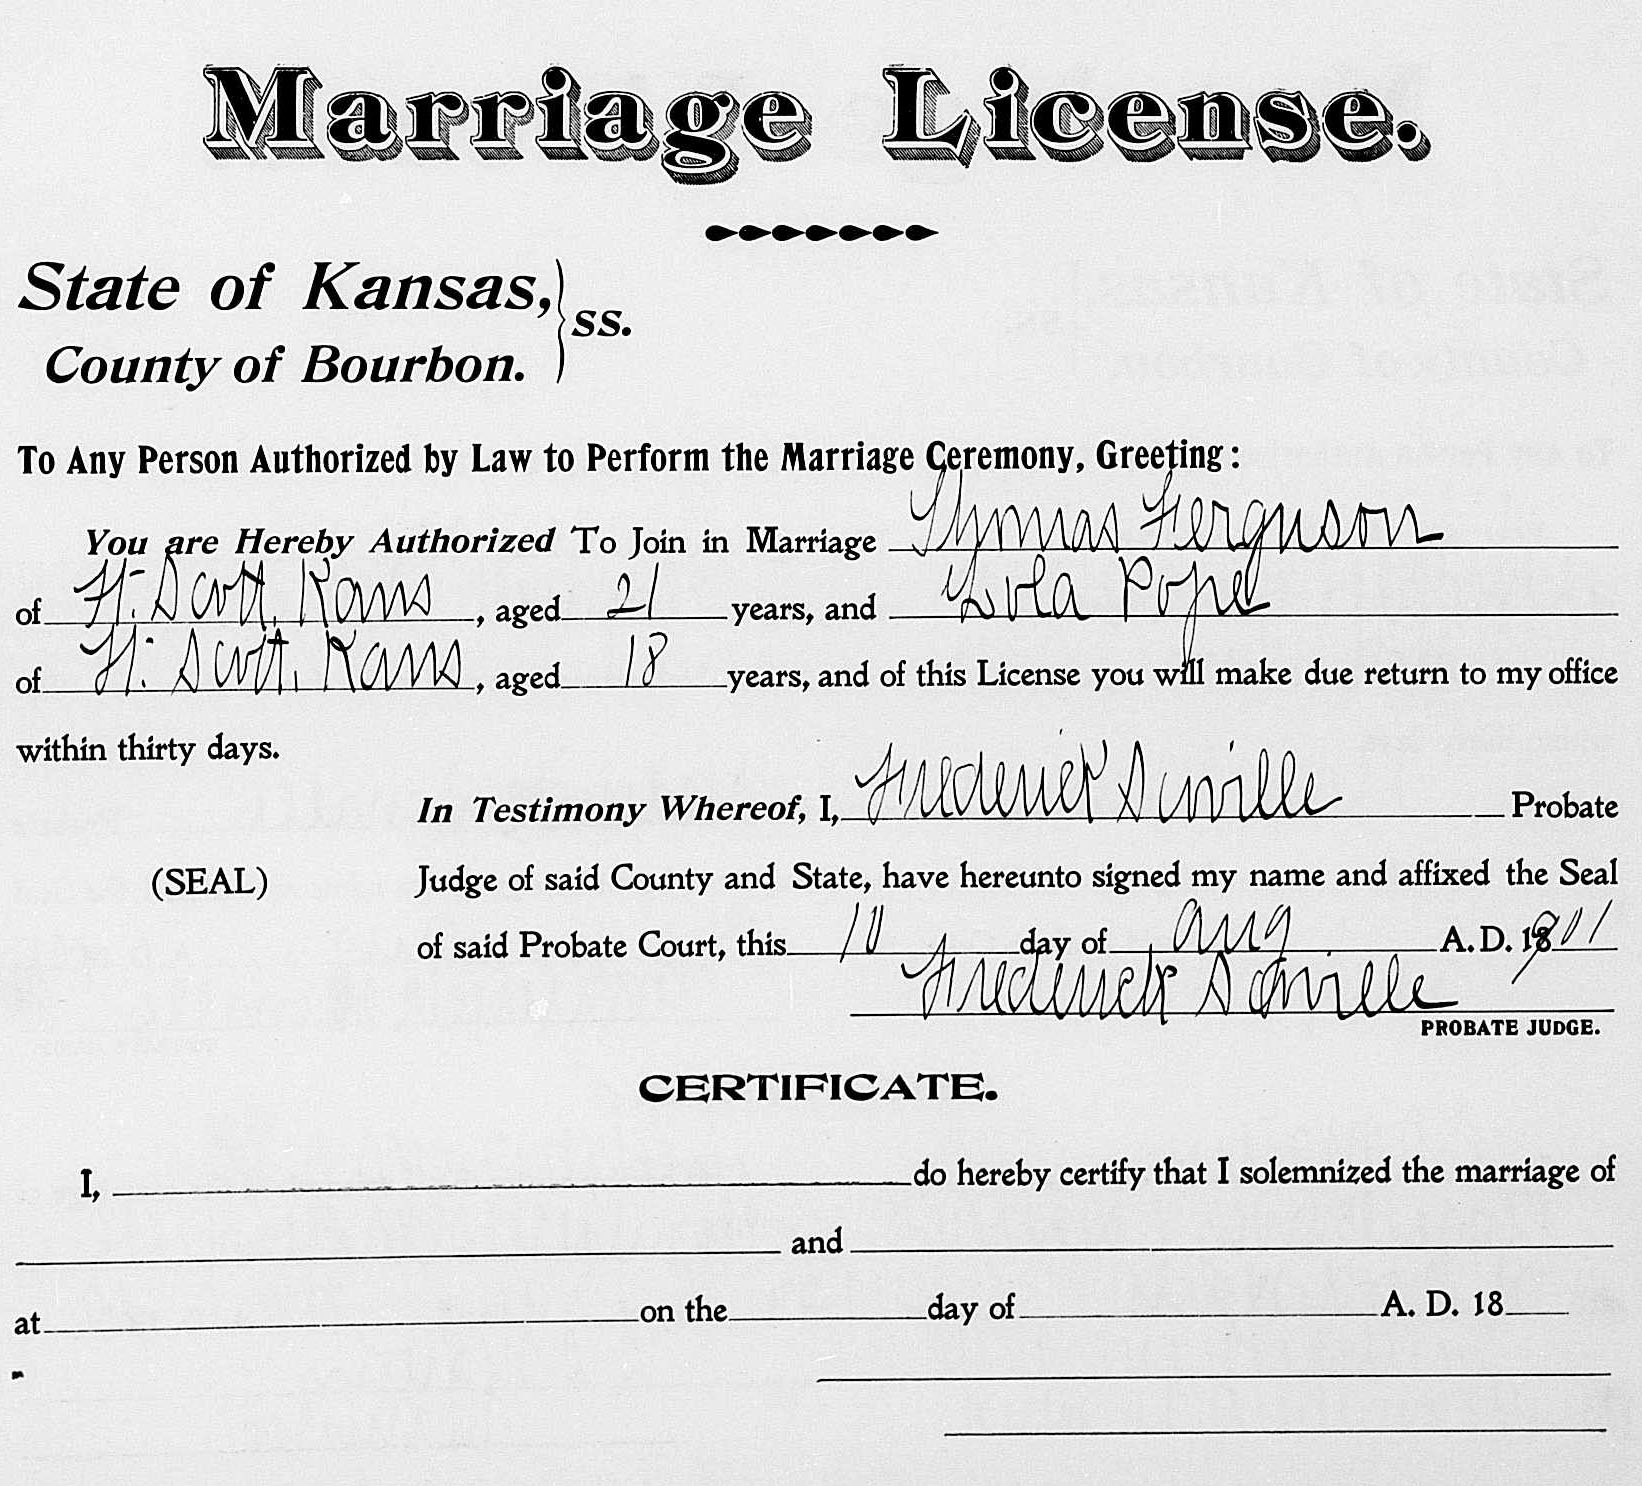 Marriage License.
State of Kansas,
County of Bourbon. } ss.
To Any Person Authorized by Law to Perform the Marriage Ceremony, Greeting:
You are Hereby Authorized To Join in Marriage Thomas Ferguson
of Ft. Scott, Kans, aged 21 years, and Lola Pope
of Ft. Scott, Kans, aged 18 years, and of this License you will make due return to my office
within thirty days.
In Testimony Whereof, I, Frederick Probate
(SEAL) Judge of said County and State, have hereunto signed my name and affixed the Seal
of said Probate Court, this 10 day of Aug A.D. 1901
Frederick
PROBATE JUDGE.
CERTIFICATE.
I, do hereby certify that I solemnized the marriage of
and
at on the day of A. D. 18